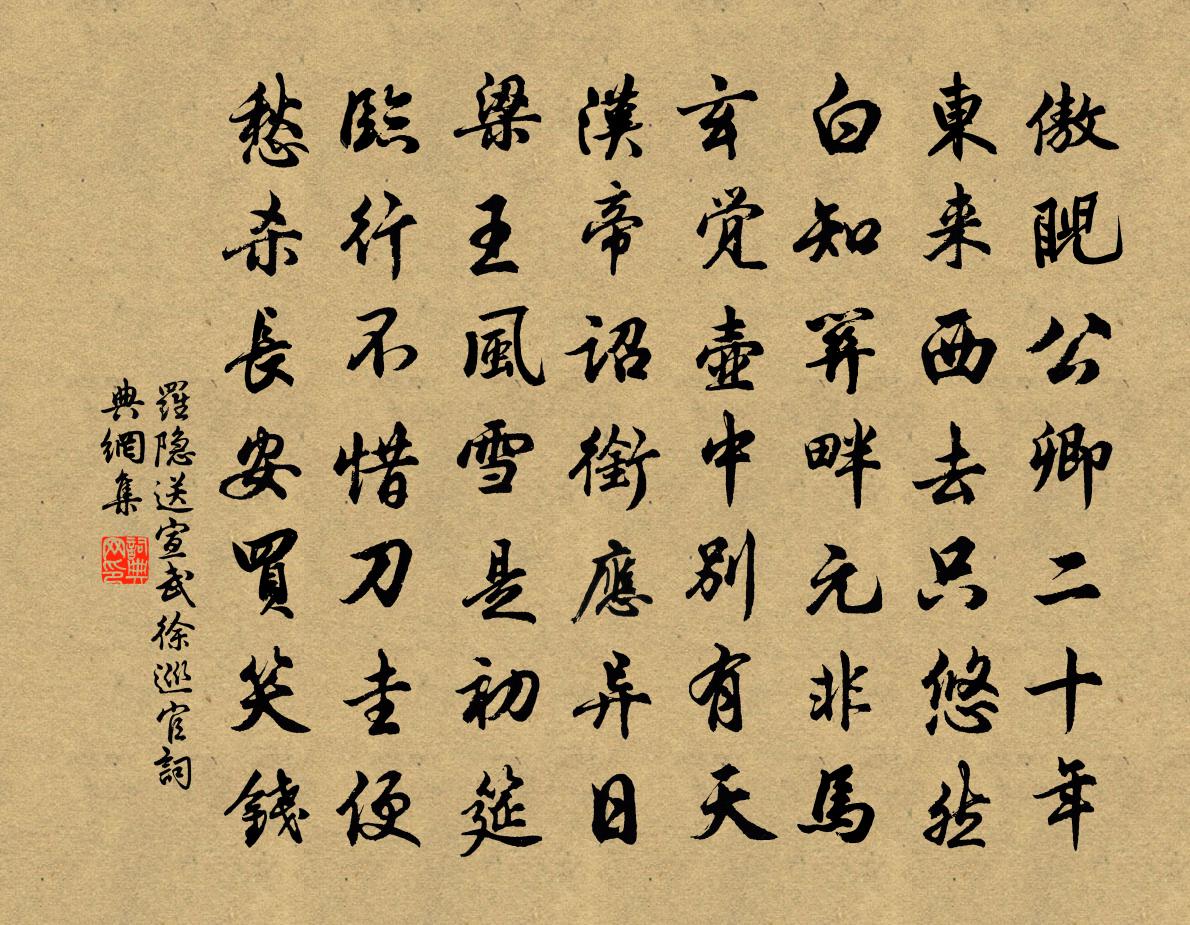 傲睨公卿二十年
東来西去只悠然
白知關畔元非馬
玄覚壺中別有天
漢帝詔銜應异日
梁王風雪是初筵
臨行不惜刀圭便
愁杀長安買笑錢
羅隐送宣武徐巡官詞
典網集
詞典
网印